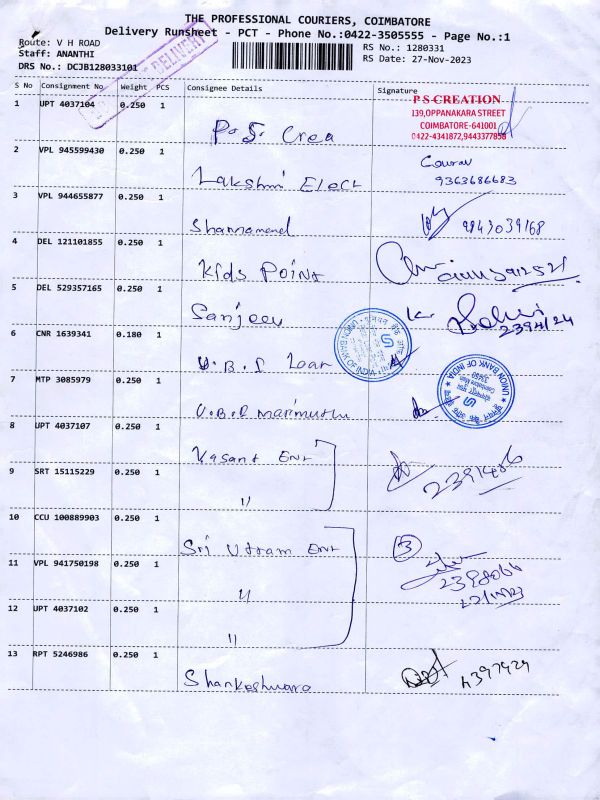 THE PROFESSIONAL COURIERS, COIMBATORE
Delivery Runsheet - PCT - Phone No.:0422-3505555 - Page No.:1
Route: V H ROAD
Staff: ANANTHI
DRS No.: DCJB128033101
RS No.: 1280331
RS Date: 27-Nov-2023
DELIVERY
S No Consignment No Weight PCS Consignee Details Signature
1 UPT 4037104 0.250 1 P. S. Crea
P S-CREATION
139,OPPANAKARA STREET
COIMBATORE-641001
0422-4341872,9443377858
2 VPL 945599430 0.250 1 Lakshmi Elect
9363686683
3 VPL 944655877 0.250 1 9843039168
4 DEL 121101855 0.250 1 Kids Point
5 DEL 529357165 0.250 1 Sanjeev
6 CNR 1639341 0.180 1 U.B.I Loan
BANK OF INDIA
7 MTP 3085979 0.250 1 U.B.I Marimuthu
UNION BANK OF INDIA
8 UPT 4037107 0.250 1 Vasant Ent
9 SRT 15115229 0.250 1 "
2391486
10 CCU 100889903 0.250 1 Sri Uttam Ent
3
11 VPL 941750198 0.250 1 "
2398066
12 UPT 4037102 0.250 1 "
13 RPT 5246986 0.250 1 Shankeshwara
4397929